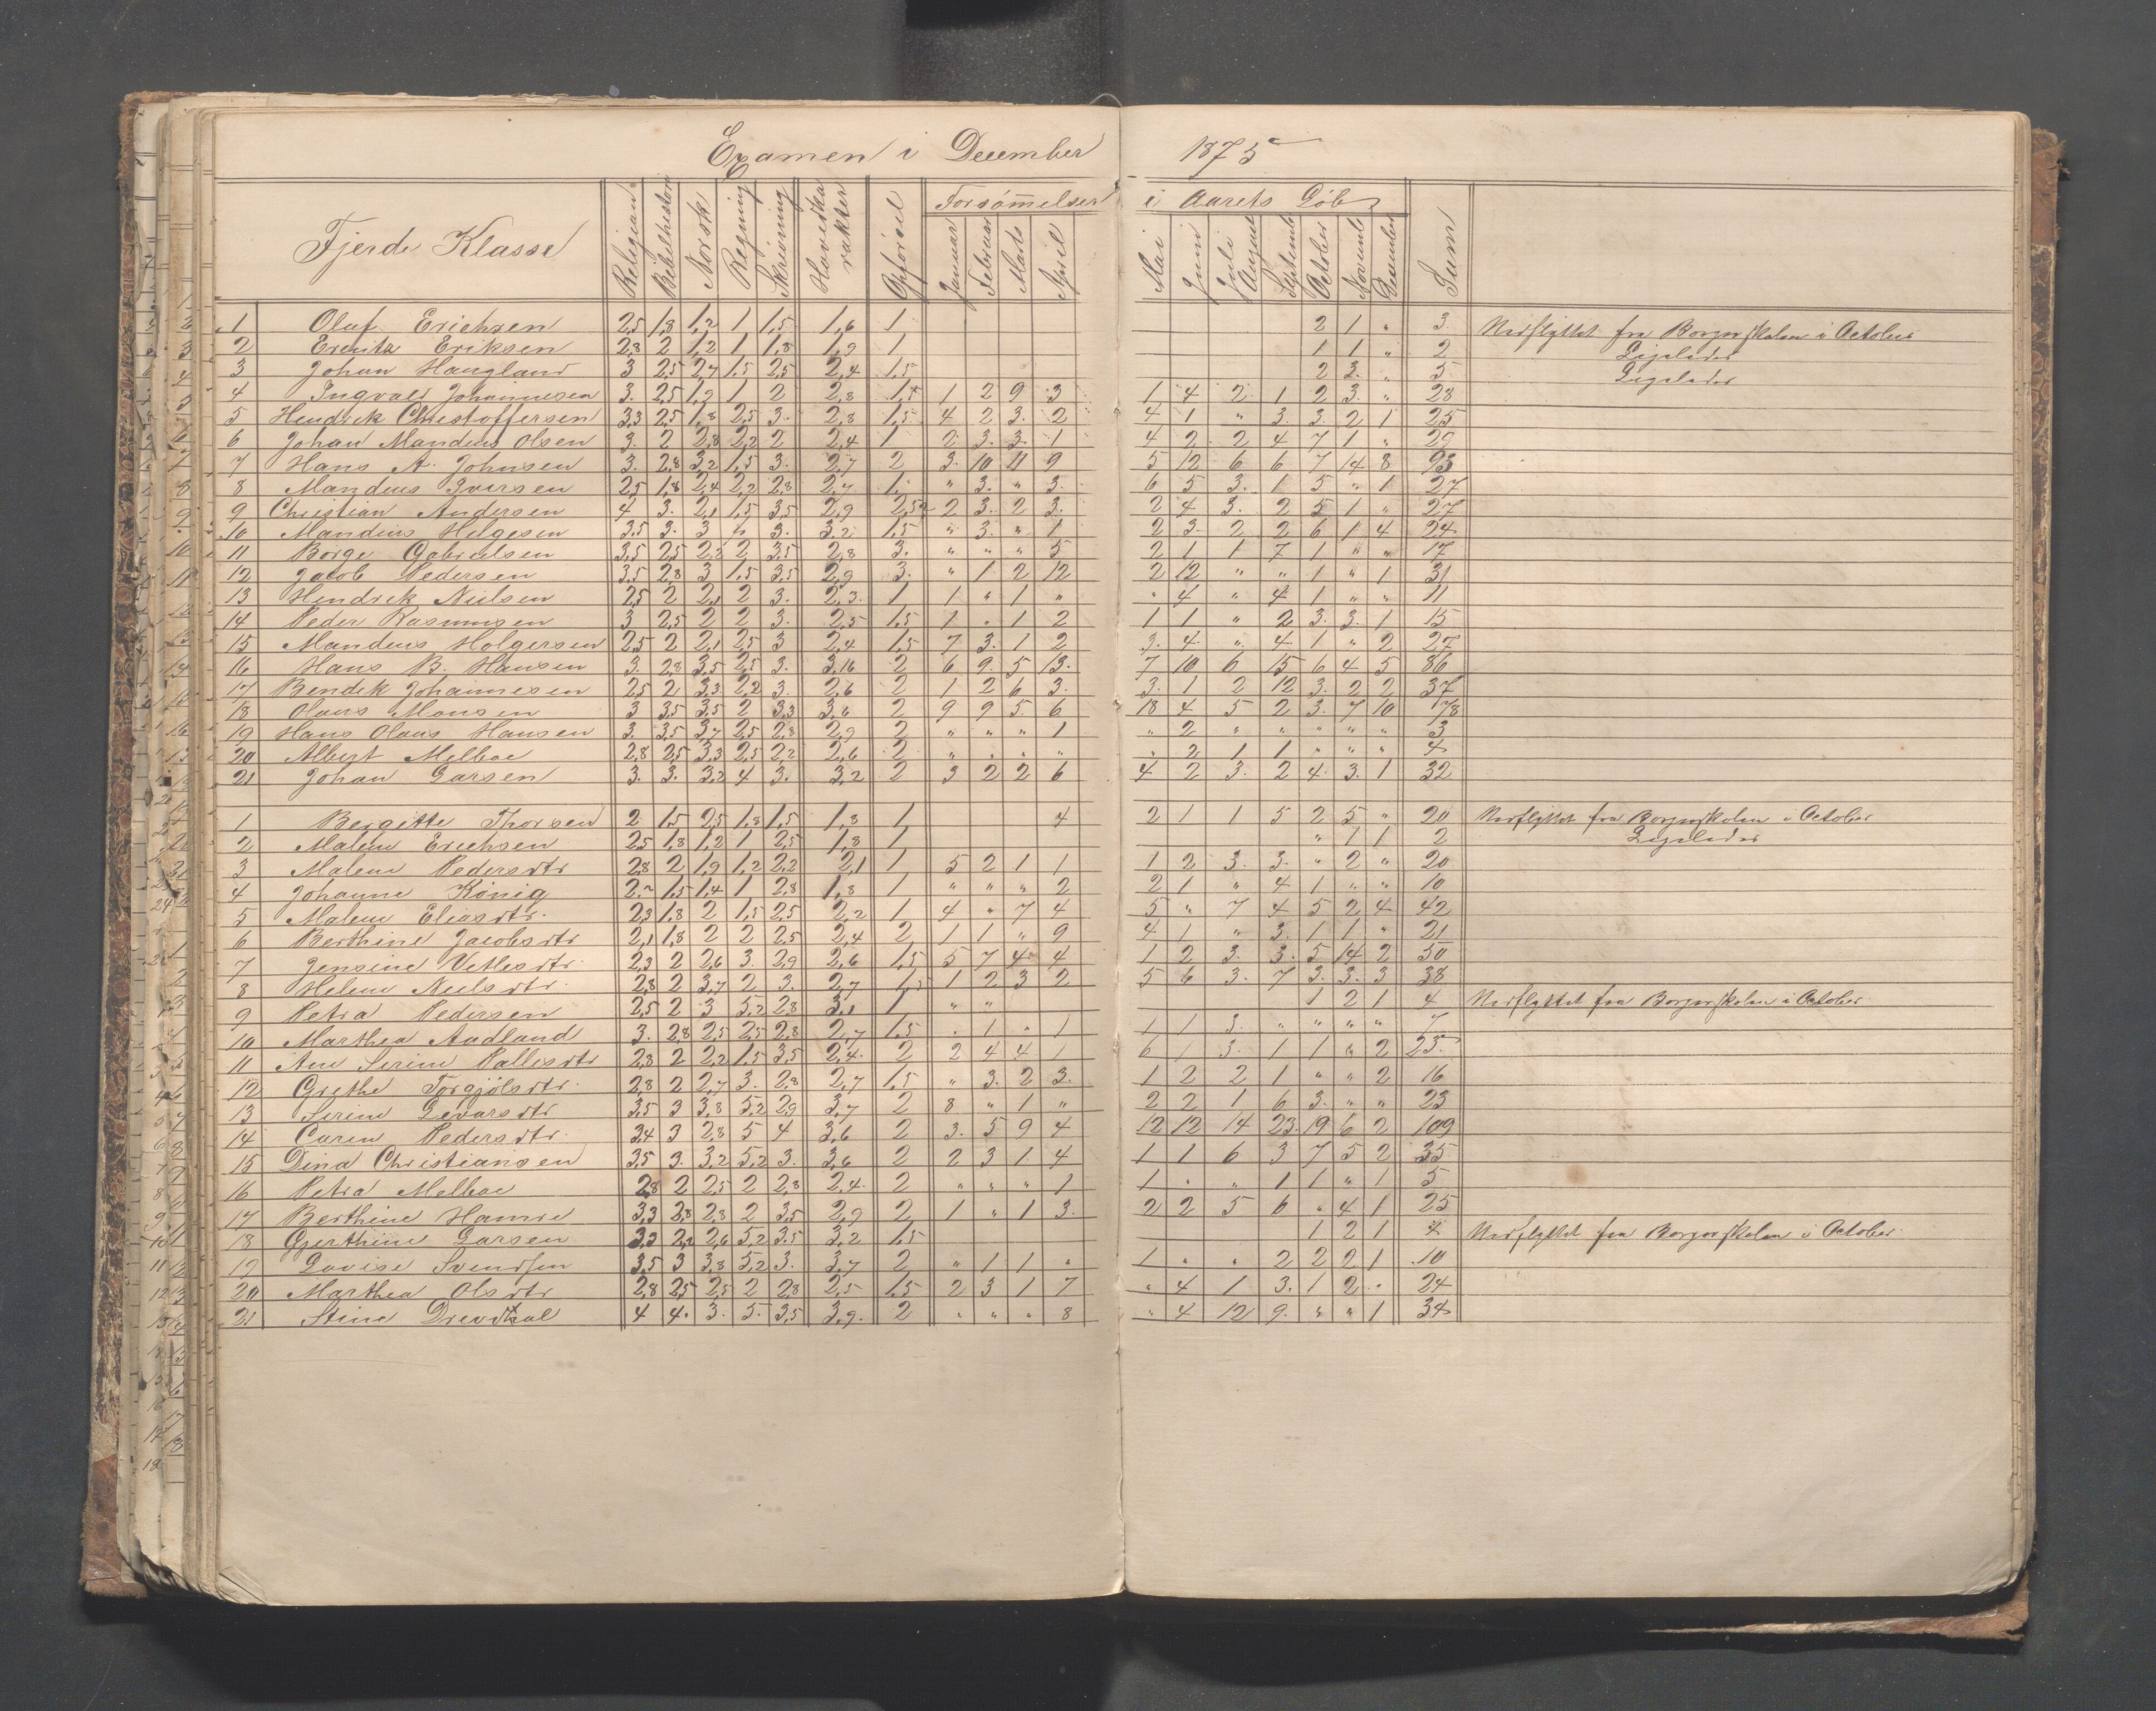 Examen i December 1875
Fjerde Klasse Religion Bibelhistori Norsk Regning Skrivning Hovedka rakter Opførsel Forsømmelser i Aarets Løb Sum
Januar Februar Marts April Mai Juni Juli August Septemb October Novemb Decemb
1 Oluf Erichsen 2,5 1,8 1,2 1 1,5 1,6 1 2 1 " 3 Nedflyttet fra Borgerskolen i October
2 Eriksen 2,8 2 1,2 1 1,8 1,9 1 1 1 " 2 Ligeledes
3 Johan Haugland 3 2,5 2,7 1,5 2,5 2,4 1,5 2 3. " 5 Ligeledes
4 Ingvald Johannesen 3. 2,5 1,9 1 2 2,8 1,5 1 2 9 3 1 4 2 1 2 3. " 28
5 Hendrik Christoffersen 3,3 2,5 1,8 2,5 3. 2,8 1,5 4 2 3. 2 4 1 " 3. 3. 2 1 25
6 Johan Mandius Olsen 3. 2 2,8 2,2 2 2,4 1 2 3. 3. 1 4 2 2 4 7 1 " 29
7 Hans A. Johnsen 3. 2,8 3,2 1,5 3. 2,7 2 3. 10 11 9 5 12 6 6 7 14 8 93
8 Mandius Iversen 2,5 1,8 2,4 2,2 2,8 2,7 1, " 3. " 3. 6 5 3. 1 5 " 1 27
9 Christian Andersen 4 3. 2,1 1,5 3,5 2,9 2,5 2 3. 2 3. 2 4 3. 2 5 1 " 27
10 Mandius Helgesen 3,5 3. 3 3. 3,2 1,5 " 3. " 1 2 3. 2 2 6 1 4 24
11 Børge Gabrielsen 3,5 2,5 2,2 2 3,5 2,8 3. " " " 5 2 1 1 7 1 " " 17
12 Jacob Pedersen 3,5 2,8 3 1,5 3,5 2,9 3. " 1 2 12 2 12 " " 1 " 1 31
13 Hendrik Nielsen 2,5 2 2,1 2 3. 2,3. 1 1 " 1 " " 4 " 4 1 " " 11
14 Peder Rasmusen 3 2,5 2 2 3. 2,5 1,5 1 " 1 2 1 1 " 2 3. 3. 1 15
15 Mandius Holgersen 2,5 2 2,1 2,5 3 2,4 1,5 7 3. 1 2 3. 4. " 4. 1 " 2 27
16 Hans B. Hansen 3. 2,8 3,5 2,5 3. 3,16 2 6 9. 5 13. 7 10 6 15 6 4 5 86
17 Bendik Johannesen 2,5 2 3,3 2,2 3. 2,6 2 1 2 6 3. 3. 1 2 12 3. 2 2 37
18 Olaus Monsen 3 3,5 3,5 2 3,3 3,6 2 9 9 5. 6 18 4 5 2 3. 7 10 78
19 Hans Olaus Hansen 3. 3,5 3,7 2,5 2,8 2,9 2 " " " 1 " 2 " " " " " 3
20 Albert Melboe 2,8 2,5 3,3 2,5 2,2 2,6 2 " " " " " 2 1 1 " " " 4
21 Johan Larsen 3. 3. 3,2 4 3. 3,2 2 3 2 2 6 4 2 3. 2 4. 3. 1 32
1 Bergitte Thorsen 2 1,5 2,5 1,8 1,5 1,8 1 4 2 1 1 5 2 5 " 20 Nedflyttet fra Borgerskolen i October
2 Malene Erichsen 2,5 1,8 1,2 1 2,5 1,8 1 " 1 1 2 Ligeledes
3 Malene Pedersdtr 2,8 2 1,9 1,2 2,2 2,1 1 5 2 1 1 1 2 3. 3. " 2 " 20
4 Johanne König 2,2 1,5 1,4 1 2,8 1,8 1 " " " 2 2 1 " 4 1 " " 10
5 Malene Eliasdtr. 2,3 1,8 2 1,5 2,5 2,2 1 4 " 7 4 5 " 7 4 5 2 4 42
6 Berthine Jacobsdtr 2,1 1,8 2 2 2,5 2,4 2 1 1 " 9 4 1 " 3. 1 1 " 21
7 Jensine Vetlesdtr. 2,3 2 2,6 3. 2,9 2,6 1,5 5 7 4 4 1 2 3. 3. 5 14 2 50
8 Helene Nielsdtr. 2,8 2 3,7 2 3. 2,7 1,5 1 2 3 2 5 6 3. 7 3. 3. 3 38
9 Petra Pedersen 2,5 2 3 5,2 2,8 3,1 1 " " 1 2 1 4 Nedflyttet fra Borgerskolen i October
10 Marthea Audland 3. 2,8 2,5 2,5 2,8 2,7 1,5 " 1 " 1 1 1 3. " " " " 7
11 Ane Serine Pallesdtr 2,8 2 2,2 1,5 3,5 2,4. 2 2 4 4 1 6 1 3. 1 1 " 2 25.
12 Grethe Torgjølsdtr. 2,8 2 2,7 3. 2,8 2,7 1,5 " 3. 2 3. 1 2 2 1 " " 2 16
13 Serine Levarsdtr 3,5 3 3,8 5,2 2,9 3,7 2 8 " 1 " 2 2 1 6 3. " " 23
14 Caren Pedersdtr. 3,4 3 2,8 5 4 3,6 2 3. 5 9 4 12 12 14 23. 19 6 2 109
15 Dina Christiansen 3,5 3. 3,2 5,2 3. 3,6 2 2 3 1 4 1 1 6 3 7 5 2 35
16 Petra Melboe 2,8 2 2,5 2 2,8 2,4. 2 " " " 1 1 " " 1 1 " 1 5
17 Berthine Hamre 3,3 2,8 2,8 2 3,5 2,9 2 1 " 1 3. 2 2 5 6 " 4 1 25
18 Gjerthine Larsen 3,3 2,2 2,6 5,2 3,5 3,2 1,5 1 2 1 4 Nedflyttet fra Borgerskolen i October.
19 Lovise Svendsen 3,5 3 3,8 5,2 3. 3,7 2 " 1 1 " 1 " " 2 2 2 1 10
20 Marthea Olsdtr 2,8 2,5 2,5 2 2,8 2,5 1,5 2 3 1 7 " 4 1 3. 1 2 " 24
21 Stine 4 4. 3. 5. 3,5 3,9. 2 " " " 8 " 4 12 9. " " 1 34